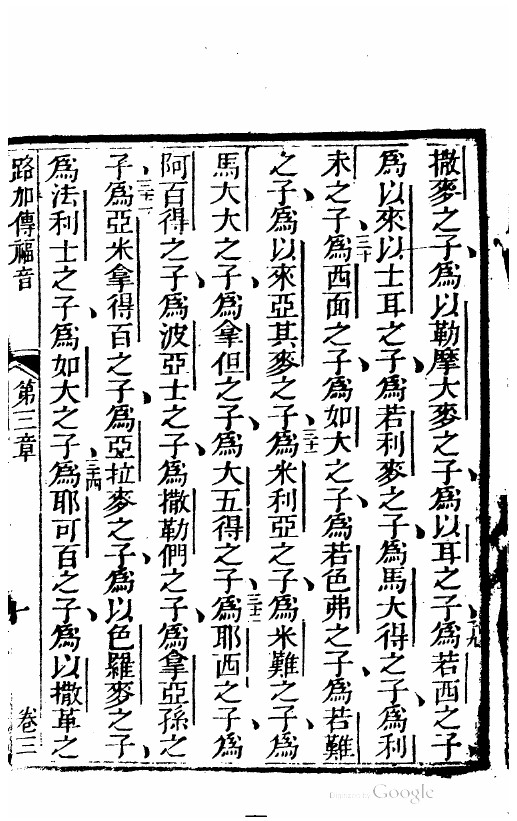 撒麥之子、為以勒摩大麥之子、為以耳之子、廿九為若西之子
為以來以士耳之子、為若利麥之子、為馬大得之子、為利
未之子、三十為西面之子、為如大之子、為若色弗之子、為若難
之子、為以來亞其麥之子、三十一為米利亞之子、為米難之子、為
馬大大之子、為拿但之子、為大五得之子、三十二為耶西之子、為
阿百得之子、為波亞士之子、為撒勒們之子、為拿亞孫之
子、三十三為亞米拿得百之子、為亞拉麥之子、為以色羅麥之子、
為法利士之子、為如大之子、三十四為耶可百之子、為以撒革之
路加傳福音 第三章 十 卷三
Digitized by Google